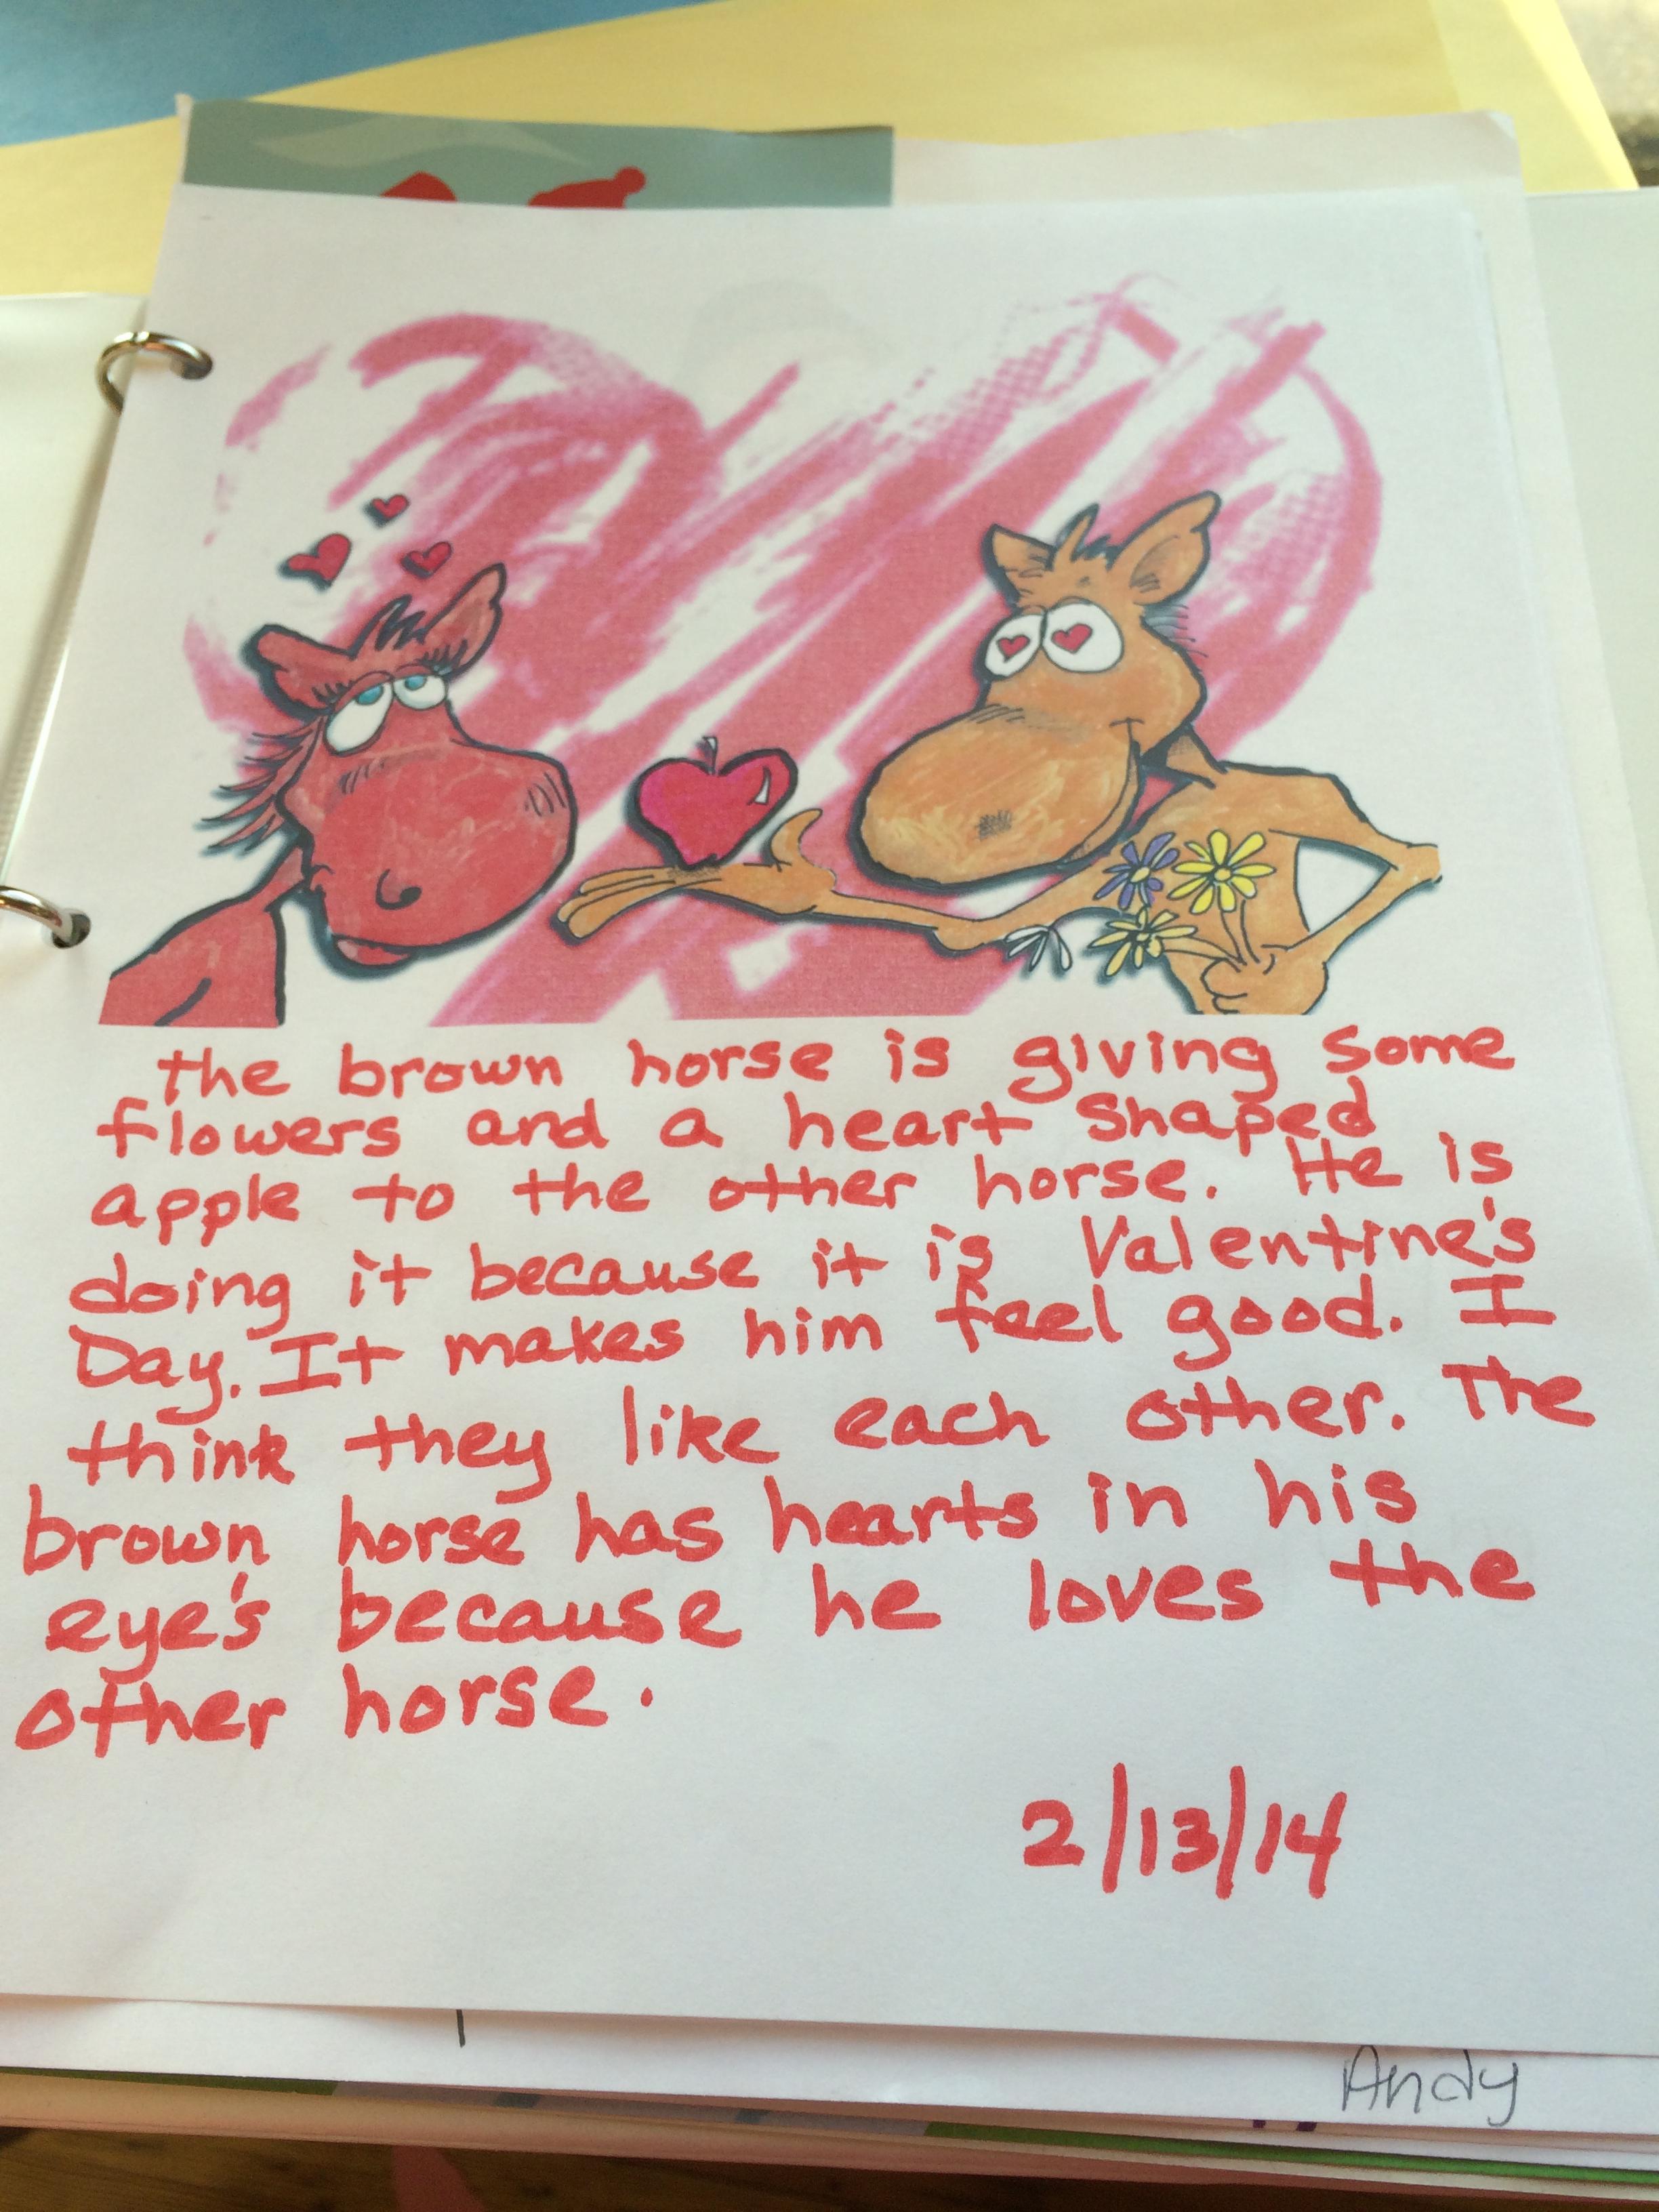 the brown horse is giving some
flowers and a heart shaped
apple to the other horse. He is
doing it because it is Valentine's
Day. It makes him feel good. I
think they like each other. The
brown horse has hearts in his
eye's because he loves the
other horse.
2/13/14
Andy